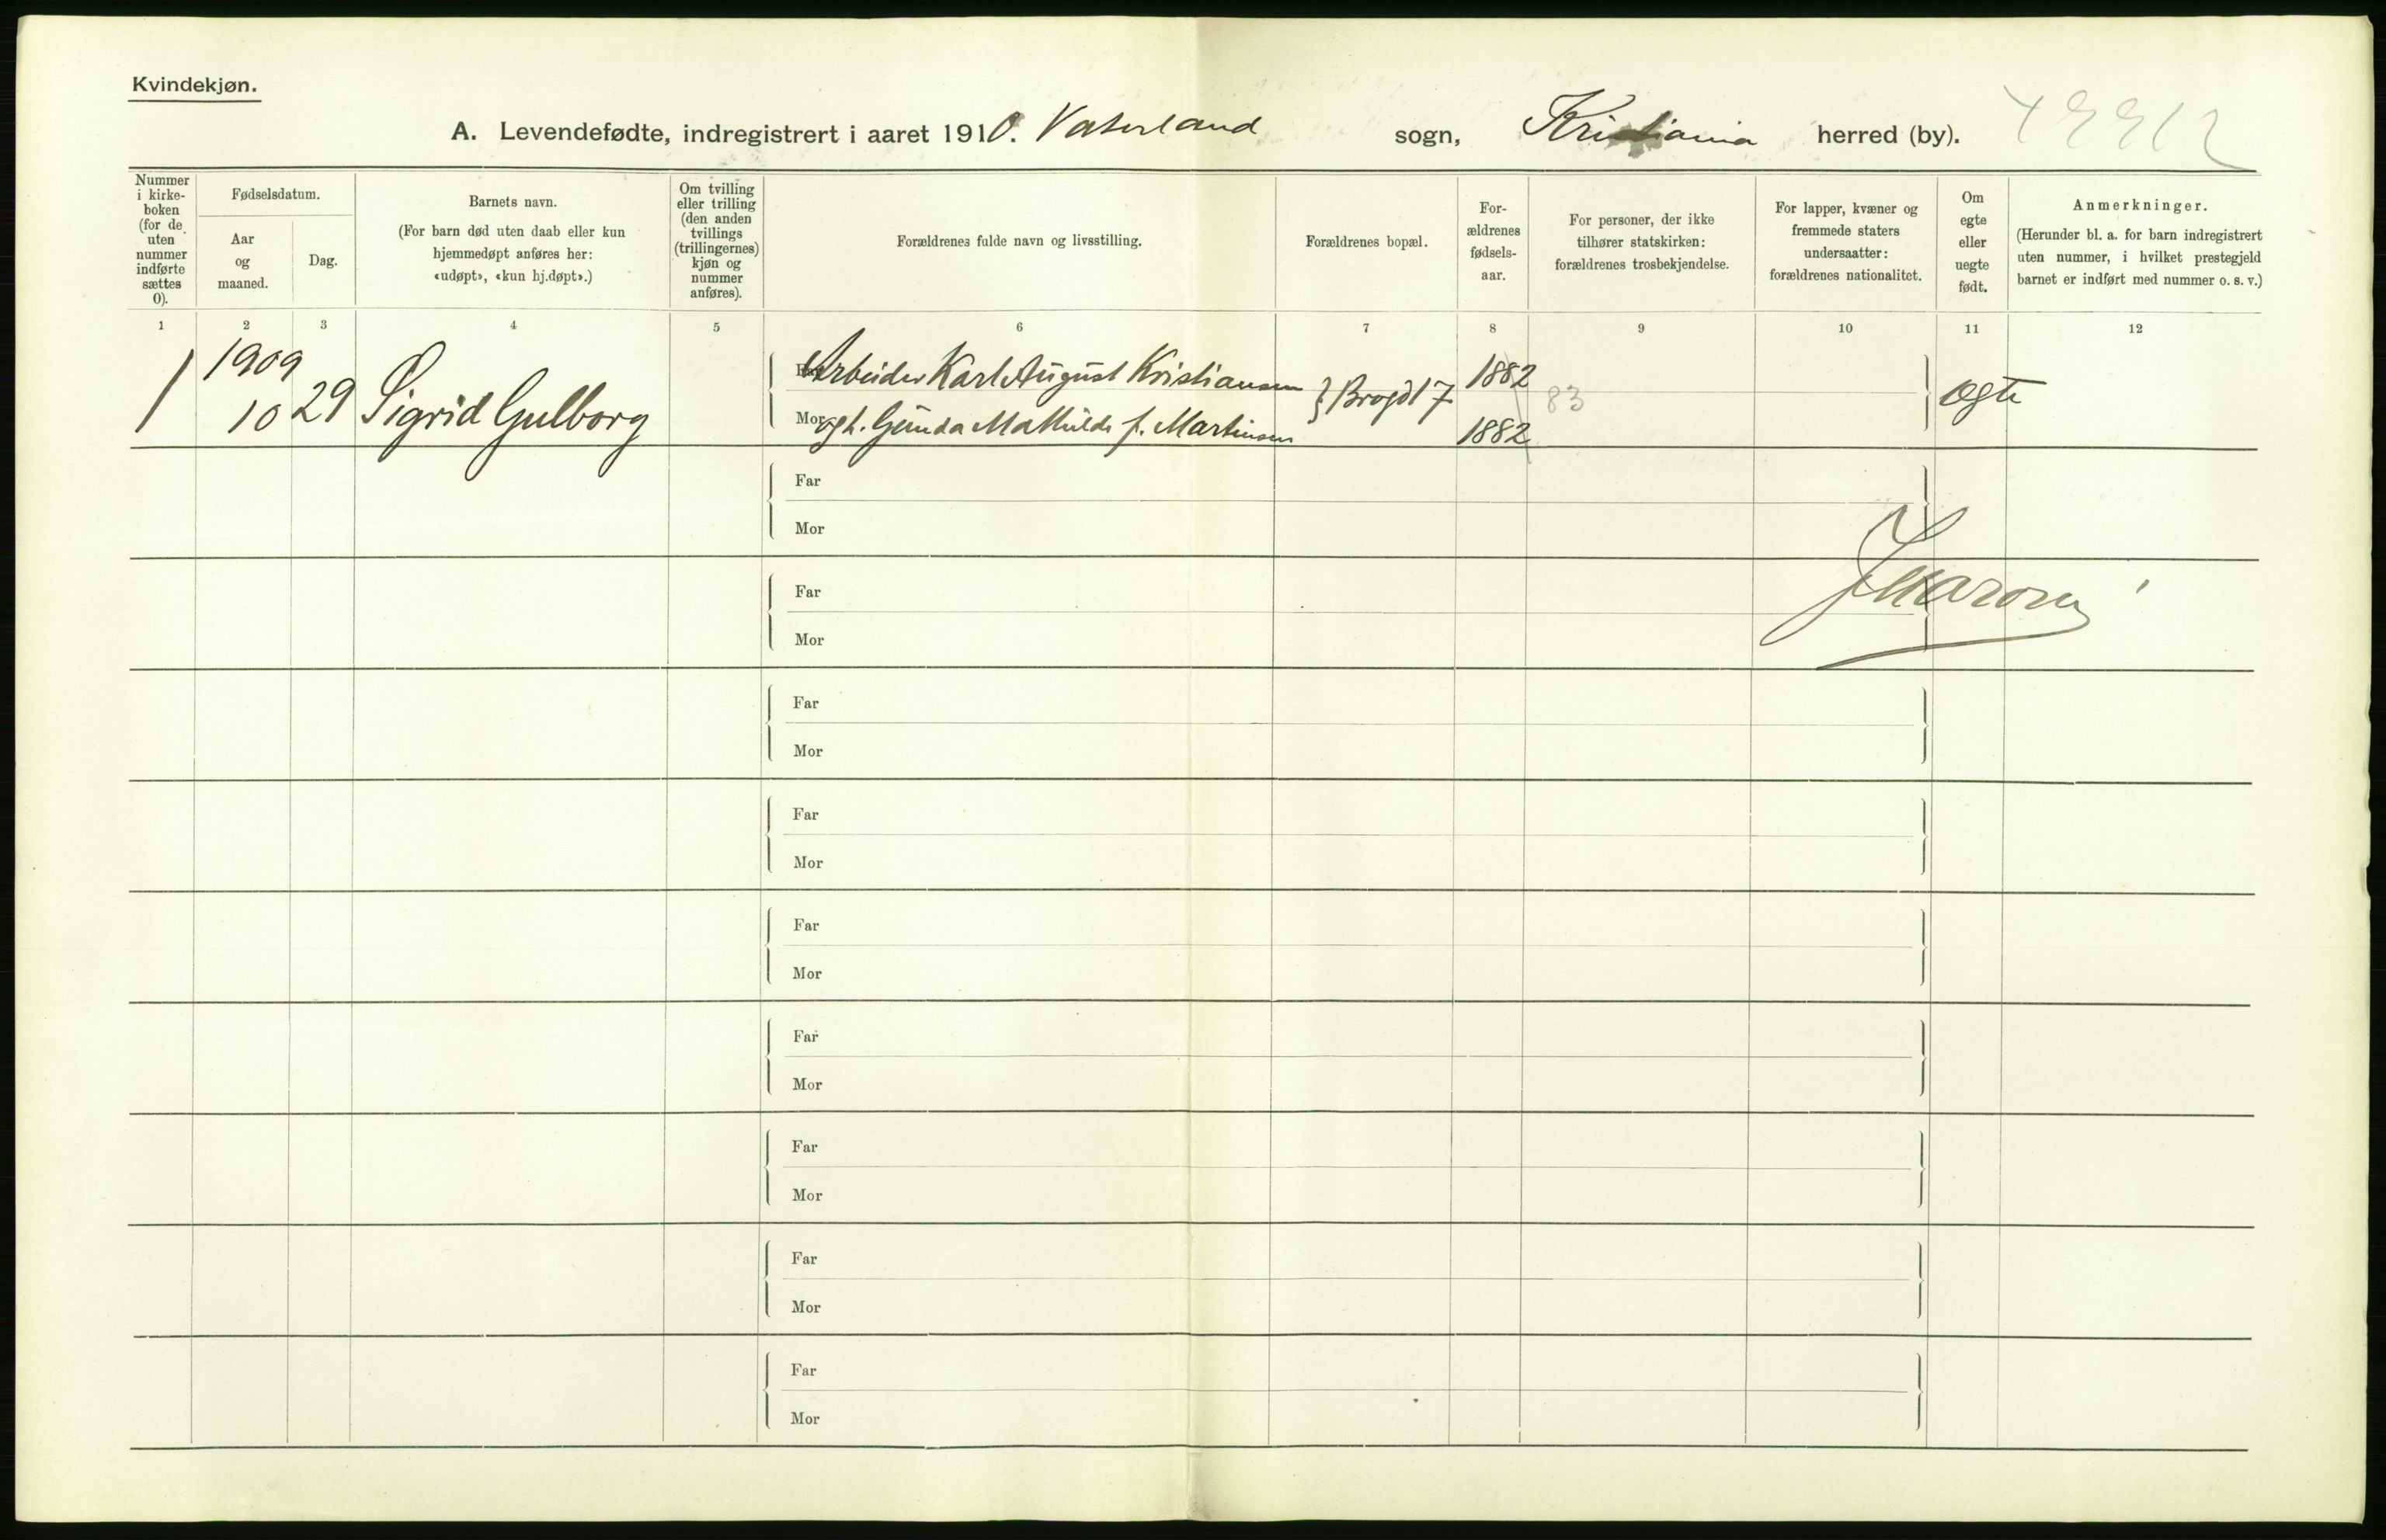 Kvindekjøn.
A. Levendefødte, indregistrert i aaret 1910. Vaterland sogn, Kristiania herred (by).
Nummer i kirke-boken (for de uten nummer indførte sættes 0).
Fødselsdatum.
Aar og maaned.
Dag.
Barnets navn.
(For barn død uten daab eller kun hjemmedøpt anføres her: «udøpt», «kun hj.døpt».)
Om tvilling eller trilling (den anden tvillings (trillingernes) kjøn og nummer anføres).
Forældrenes fulde navn og livsstilling.
Forældrenes bopæl.
For-ældrenes fødsels-aar.
For personer, der ikke tilhører statskirken: forældrenes trosbekjendelse.
For lapper, kvæner og fremmede staters undersaatter: forældrenes nationalitet.
Om egte eller uegte født.
Anmerkninger.
(Herunder bl. a. for barn indregistrert uten nummer, i hvilket prestegjeld barnet er indført med nummer o. s. v.)
1 2 3 4 5 6 7 8 9 10 11 12
1 1909 10 29 Sigrid Gulborg
Far Arbeider Karl August Kristiansen
Mor og h. Gunda Mathilde f. Martinsen
Brogd 17
1882
1882
83
Ægte
Far
Mor
Far
Mor
Far
Mor
Far
Mor
Far
Mor
Far
Mor
Far
Mor
Far
Mor
Far
Mor